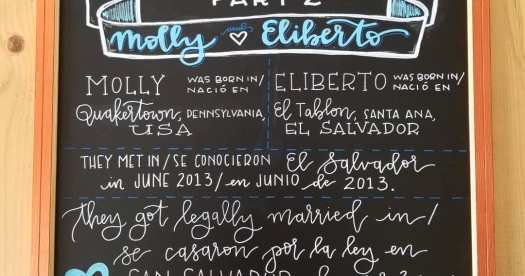 PART 2
Molly and Eliberto
MOLLY WAS BORN IN/ NACIÓ EN
Quakertown, PENNSYLVANIA,
USA
ELIBERTO WAS BORN IN/ NACIÓ EN
El Tablon, SANTA ANA,
EL SALVADOR
THEY MET IN/SE CONOCIERON El Salvador
in JUNE 2013/en JUNIO de 2013.
they got legally married in/
se casaron por la ley en
SAN SALVADOR